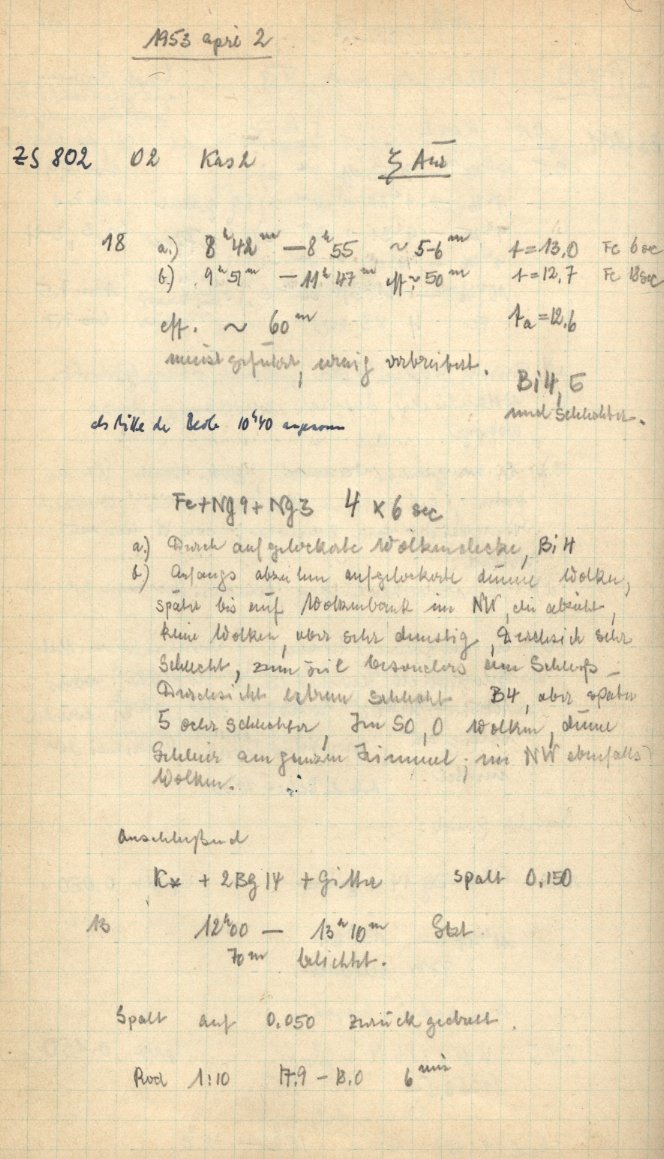 1953 april 2
ZS 802 02 Kas 2 ζ Aur
18 a.) 8h 42m — 8h 55 ~ 5-6m t = 13,0 Fe 6 sec
b.) 9h 51m — 11h 47m eff. ~ 50m t = 12,7 Fe 18 sec
eff. ~ 60m ta = 12,6
meist geführt, wenig verbreitert.
Bi 4, 5
und schlechter.
als Mitte der Beob. 10h40 angenom
Fe + Ng9 + Ng3 4 x 6 sec
a.) Durch aufgelockerte Wolkendecke, Bi 4
b) Anfangs abziehen aufgelockerte dünne Wolken,
später bis auf Wolkenbank im NW, die abzieht,
keine Wolken, aber sehr dunstig, Durchsicht sehr
schlecht, zum Teil besonders am Schluß
Durchsicht extrem schlecht B4, aber später
5 oder schlechter, Im SO, O Wolken, dünne
Schleier am ganzen Himmel, im NW ebenfalls
Wolken.
Anschließend
K* + 2Bg 14 + Gitter Spalt 0,150
13 12h00 — 13h 10m
70m belichtet.
Spalt auf 0.050 zurückgedreht.
Rod 1:10 17.9 - 18.0 6 min